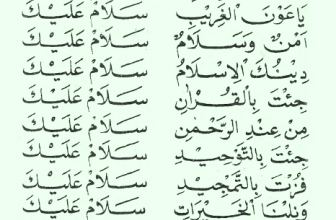 يَاعَوْنَ الْغَرِيْبِ سَلَامْ عَلَيْكَ
اَمْنٌ وَسَلَامٌ سَلَامْ عَلَيْكَ
دِيْنُكَ الْاِسْلَامُ سَلَامْ عَلَيْكَ
جِئْتَ بِالْقُرْاٰنِ سَلَامْ عَلَيْكَ
مِنْ عِنْدِ الرَّحْمٰنِ سَلَامْ عَلَيْكَ
جِئْتَ بِالتَّوْحِيْدِ سَلَامْ عَلَيْكَ
فُزْتَ بِالتَّمْجِيْدِ سَلَامْ عَلَيْكَ
وَنِلْنَا الْخَيْرَاتِ سَلَامْ عَلَيْكَ